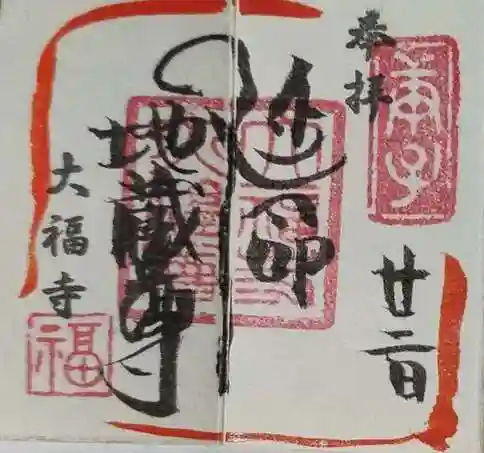 奉拝
廿二日
延命
地蔵尊
大福寺
福